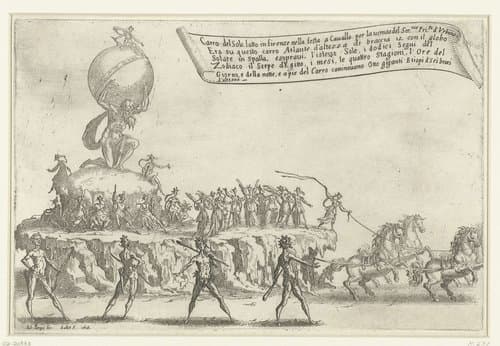 Carro del Sole fatto in firenze nella festa a Cavallo per la venuta del Ser.mo Prī.pe d'Urbino
Era su questo carro Atlante d'altezza di braccia 12. con il globo
Solare in Spalla, eranui l'istesso Sole, i dodici Segni del
Zodiaco il Serpe d'Egitto, i mesi, le quattro Stagioni, l'Ore del
Giorno, e della notte, e a pie del Carro caminauano Otto giganti
d'altezza
Iul. Parigii Inu. Callot F. 1616